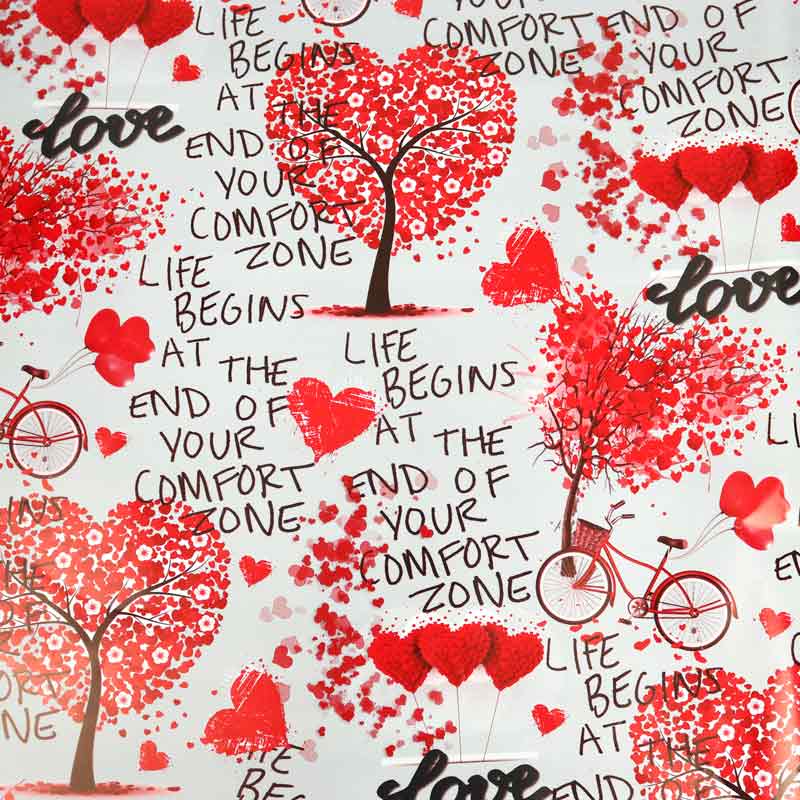 LIFE
BEGINS
AT THE
END OF
YOUR
COMFORT
ZONE
COMFORT
ZONE
END OF
YOUR
COMFORT
ZONE
love
love
LIFE
BEGINS
AT THE
END OF
YOUR
COMFORT
ZONE
LIFE
BEGINS
AT THE
END OF
YOUR
COMFORT
ZONE
LIFE
BEGINS
AT THE
END OF
love